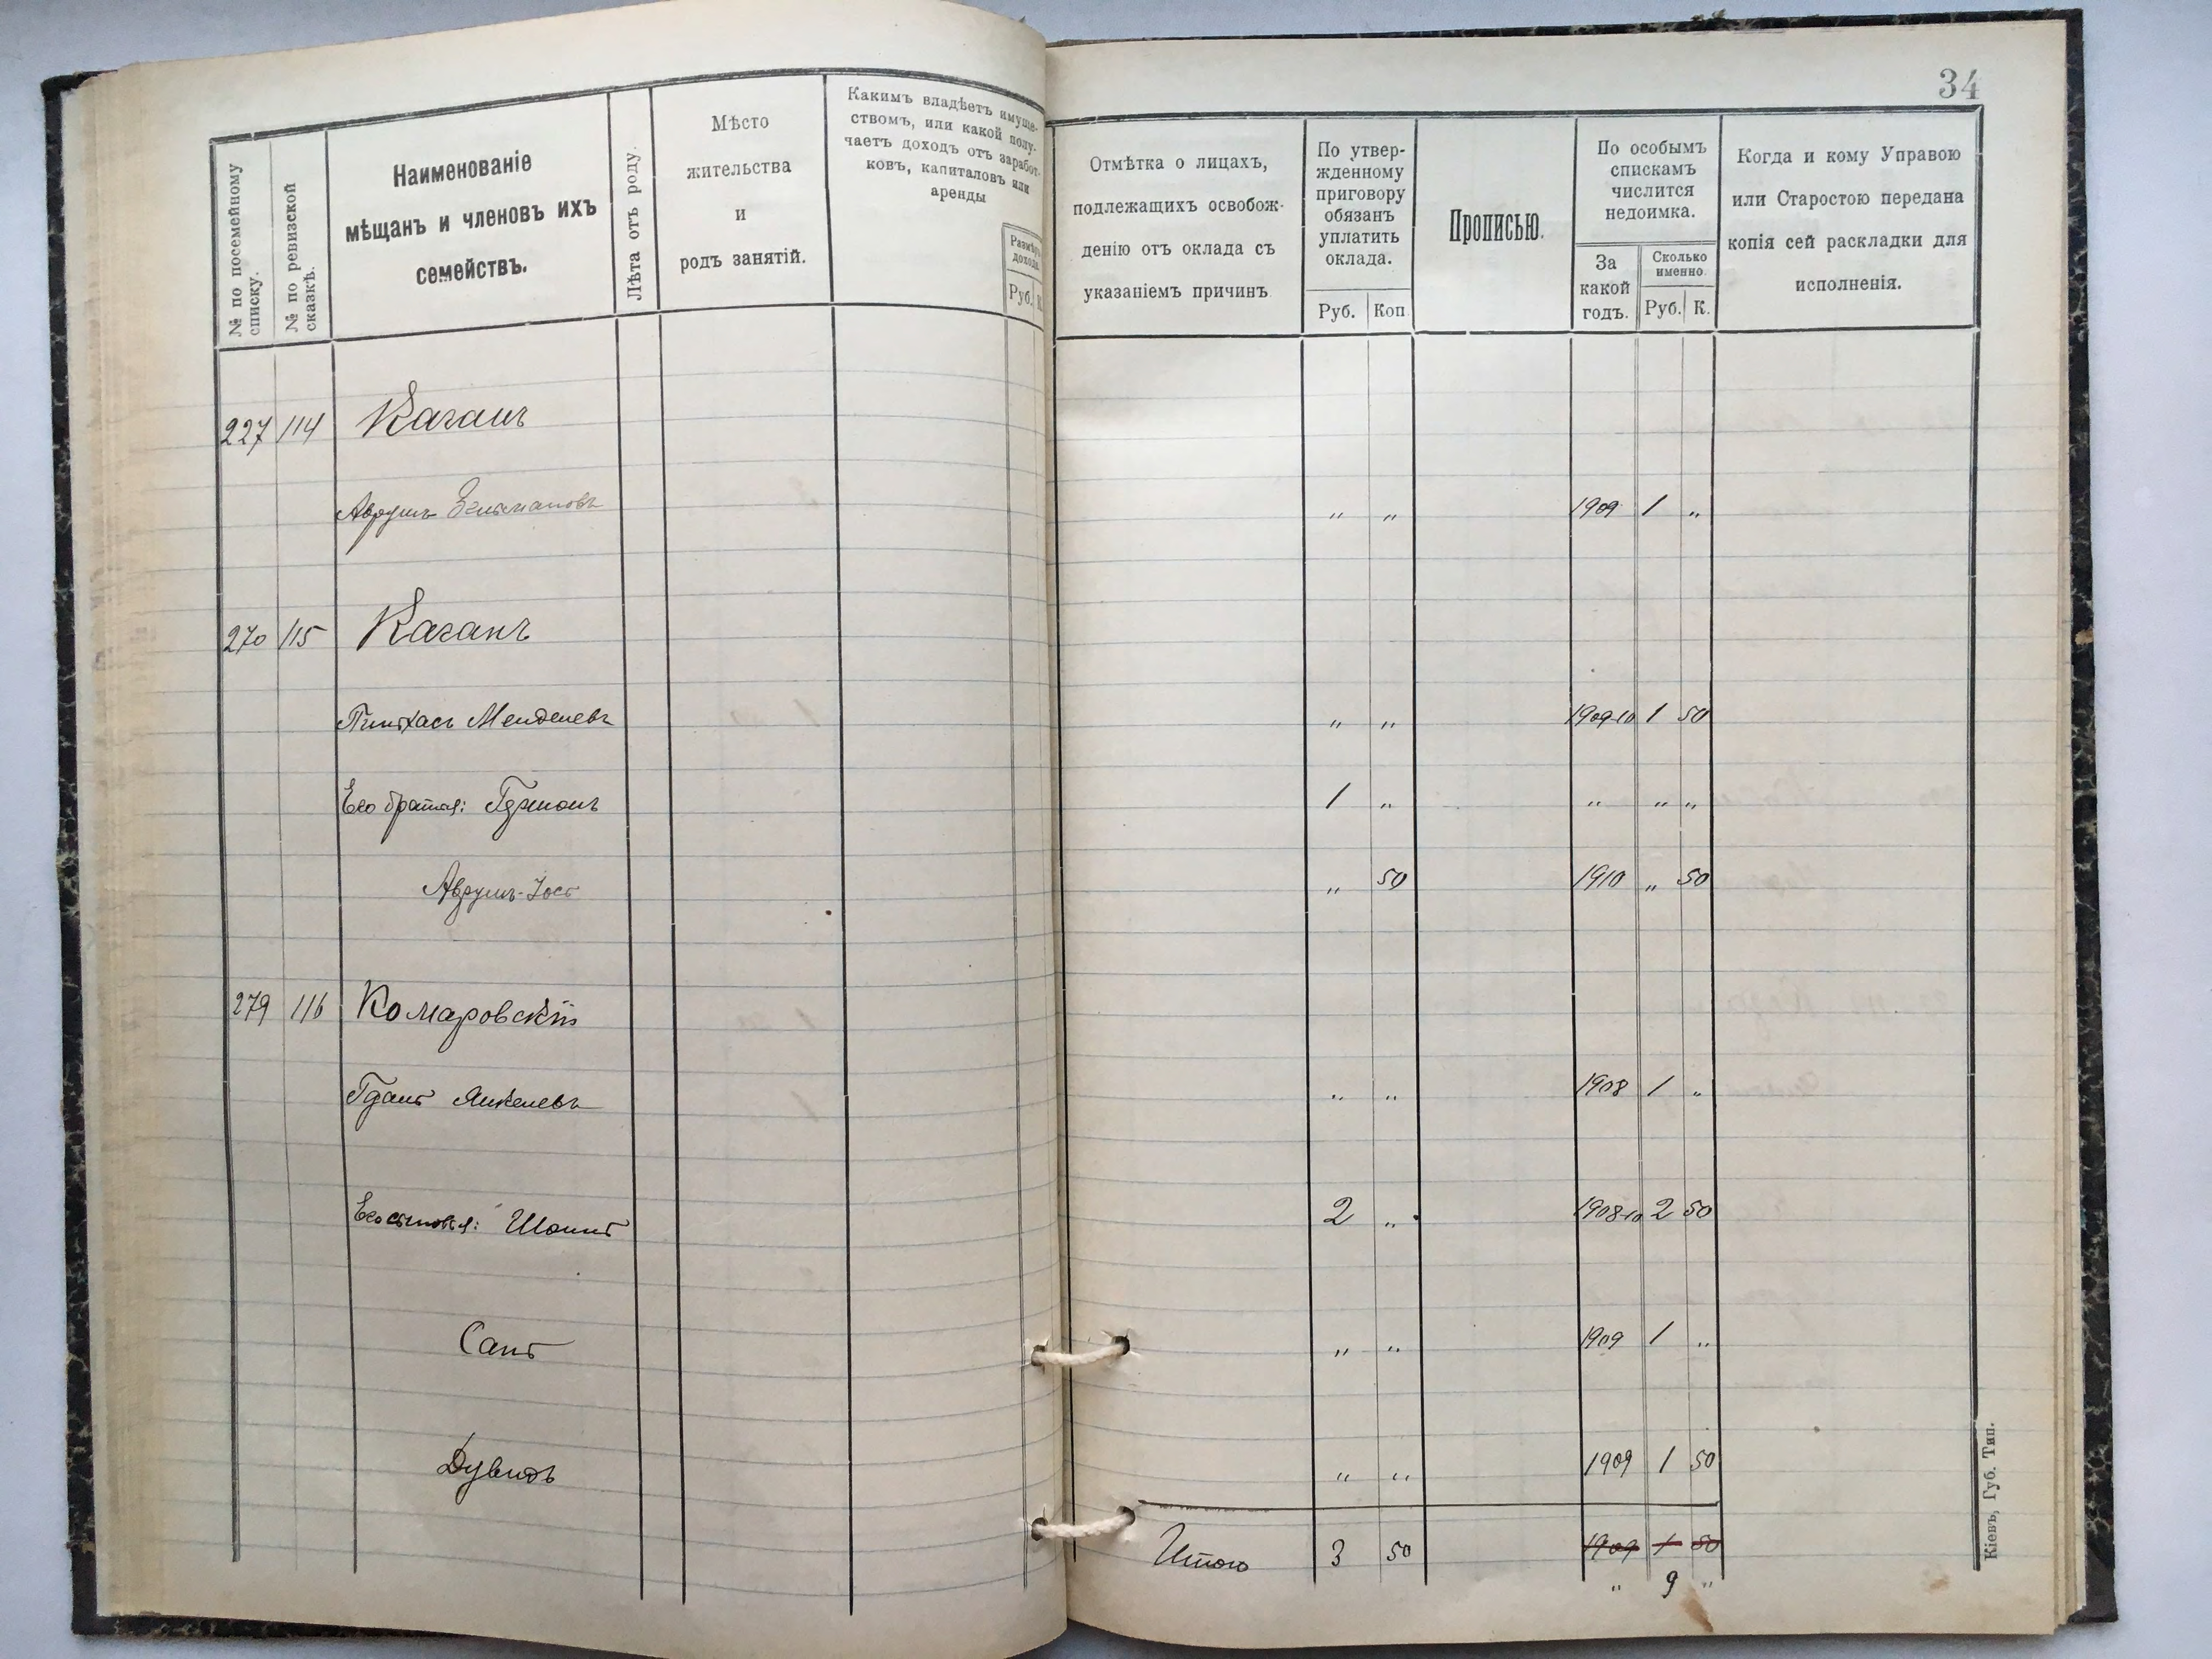 34
№ по посемейному
списку.
№ по ревизской
сказкѣ.
Наименованіе
мѣщанъ и членовъ ихъ
семействъ.
Лѣта отъ роду.
Мѣсто
жительства
и
родъ занятій.
Какимъ владѣетъ имуще-
ствомъ, или какой полу-
чаетъ доходъ отъ заработ-
ковъ, капиталовъ или
аренды
Размѣръ
дохода.
Руб. К.
Отмѣтка о лицахъ,
подлежащихъ освобож-
денію отъ оклада съ
указаніемъ причинъ
По утвер-
жденному
приговору
обязанъ
уплатить
оклада.
Руб. Коп
Прописью.
По особымъ
спискамъ
числится
недоимка.
За
какой
годъ.
Сколько
именно.
Руб. К.
Когда и кому Управою
или Старостою передана
копія сей раскладки для
исполненія.
227 114 Каганъ
Аврумъ Зельмановъ „ „ 1909 1 „
270 115 Каганъ
Пинхасъ Менделевъ „ „ 1909-10 1 50
Его братья: 1 „ „ „ „
Аврумъ-Іось „ 50 1910 „ 50
279 116 Комаровскій
Янкелевъ „ „ 1908 1 „
Его сыновья: 2 „ 1908-10 2 50
„ „ 1909 1 „
Дувидъ „ „ 1909 1 50
Итого 3 50 1909 1 50
„ 9 „
Кіевъ, Губ. Тип.